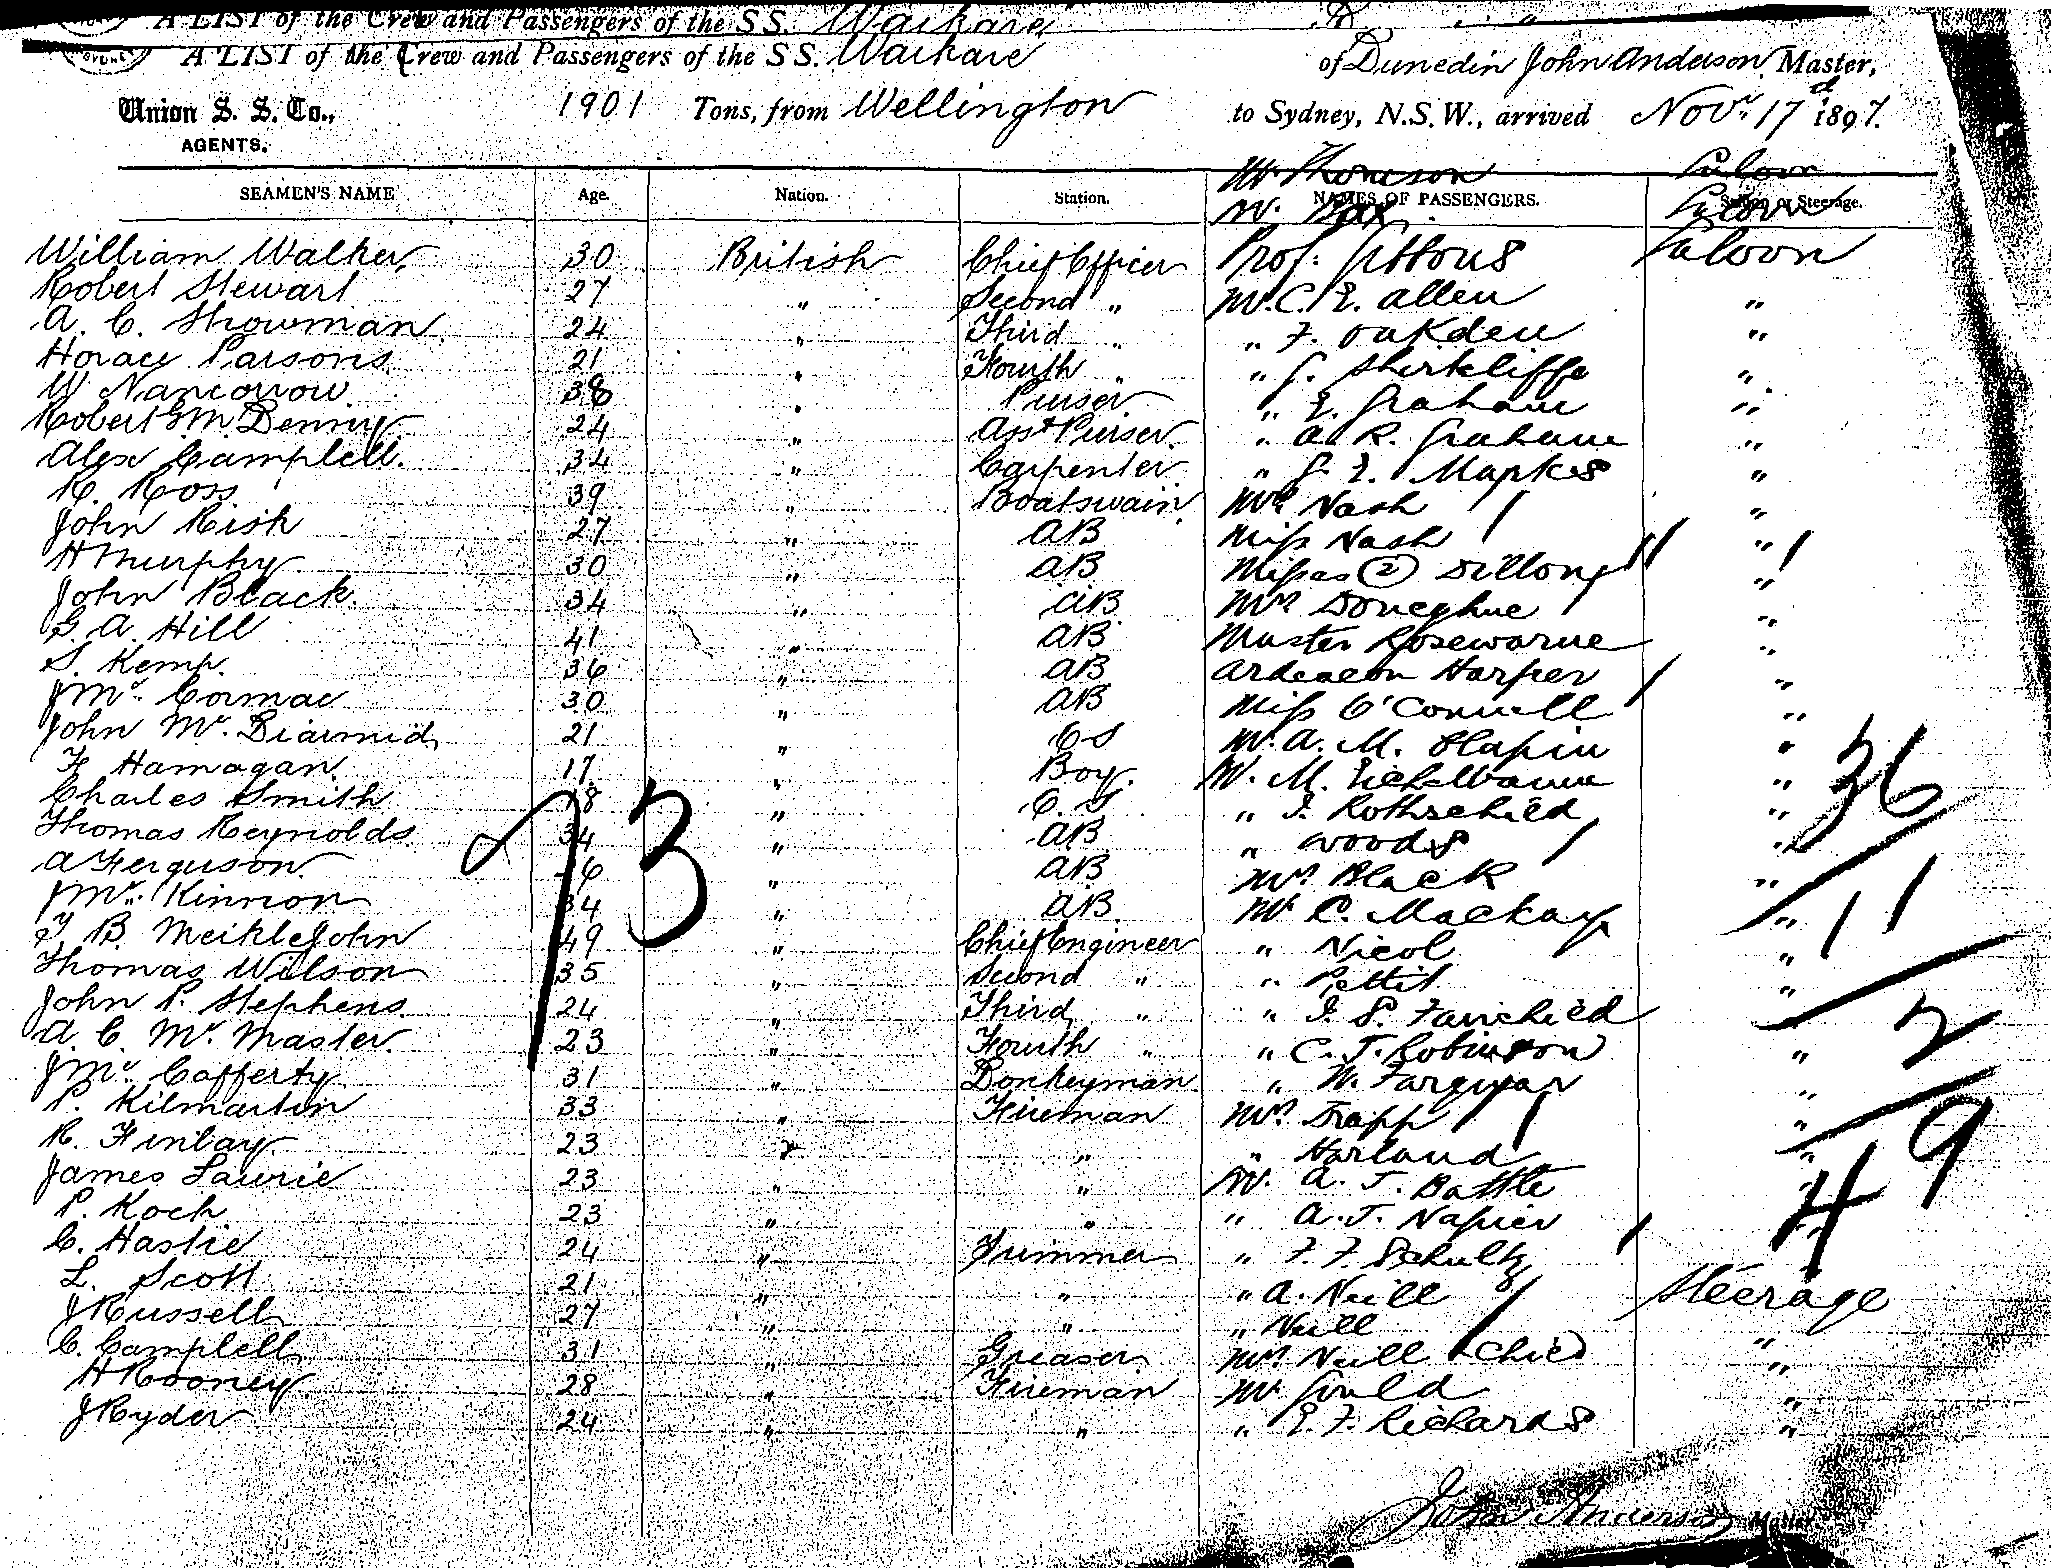 A LIST of the Crew and Passengers of the SS. Waikare
A LIST of the Crew and Passengers of the SS. Waikare of Dunedin John Anderson, Master,
Union S. S. Co., 1901 Tons, from Wellington to Sydney, N.S.W., arrived Novr. 17 1897.
AGENTS.
Mr Thomson Saloon
SEAMEN'S NAME Age. Nation. Station. NAMES OF PASSENGERS. Saloon or Steerage.
William Walker 30 British Chief Officer Prof. Gibbons Saloon
Robert Stewart 27 " Second " Mr. C. E. Allen "
A. C. Showman 24 " Third " " F. Oakden "
Horace Parsons 21 " Fourth " " G. Shirtcliffe "
W. Nancorrow 38 " Purser " E. Graham "
Robert G. M. Denny 24 " Asst Purser " A. R. Graham "
Alex Campbell. 34 " Carpenter " G. E. Mapkes "
R. Ross 39 " Boatswain Mrs Nash / "
John Risk 27 " AB Miss Nash "
H Murphy 30 " AB Misses (2) Dillong // " /
John Black. 34 " AB Mrs Doneghue "
G. A. Hill 41 " AB Master Rosewarne "
S. Kemp. 36 " AB Ardeacon Harper "
J Mc. Cormac 30 " AB Miss O'Connell "
John Mc. Diarmid 21 " OS Mr. A. M. Hapin "
F Hamagan 17 " Boy. Mr. M. "
Charles Smith 18 " O. S " I. Rothschild "
Thomas Reynolds 34 " AB " Woods / "
A Ferguson 46 " AB Mrs Black "
J Mc. Kinnon 34 " AB Mr C. Mackay "
B. Meiklejohn 49 " Chief Engineer " Nicol "
Thomas Wilson 35 Second " " Pettit "
John P. Stephens 24 " Third " " J. S. Fairchild
A. C. Mc. Master. 23 " Fourth " " C. J. Robinson "
J Mc. Cafferty 31 " Donkeyman " W. Farquar "
P. Kilmartin 33 " Fireman Mrs Trapp / "
R. Finlay 23 " " " Harland "
James Laurie 23 " " Mr. A. J. Battle
P. Koch 23 " " " A. J. Napier
C. Hastie 24 " Trimmer " F. F. Schultz
L. Scott 21 " " " A. Neill Steerage
J Russell 27 " " " Neill "
C. Campbell 31 " Greaser Mrs Neill & Child "
H Rooney 28 " Fireman Mr Gould "
J Ryder 24 " " " E. F. Richards "
73
36
11
2
49
John Anderson Master